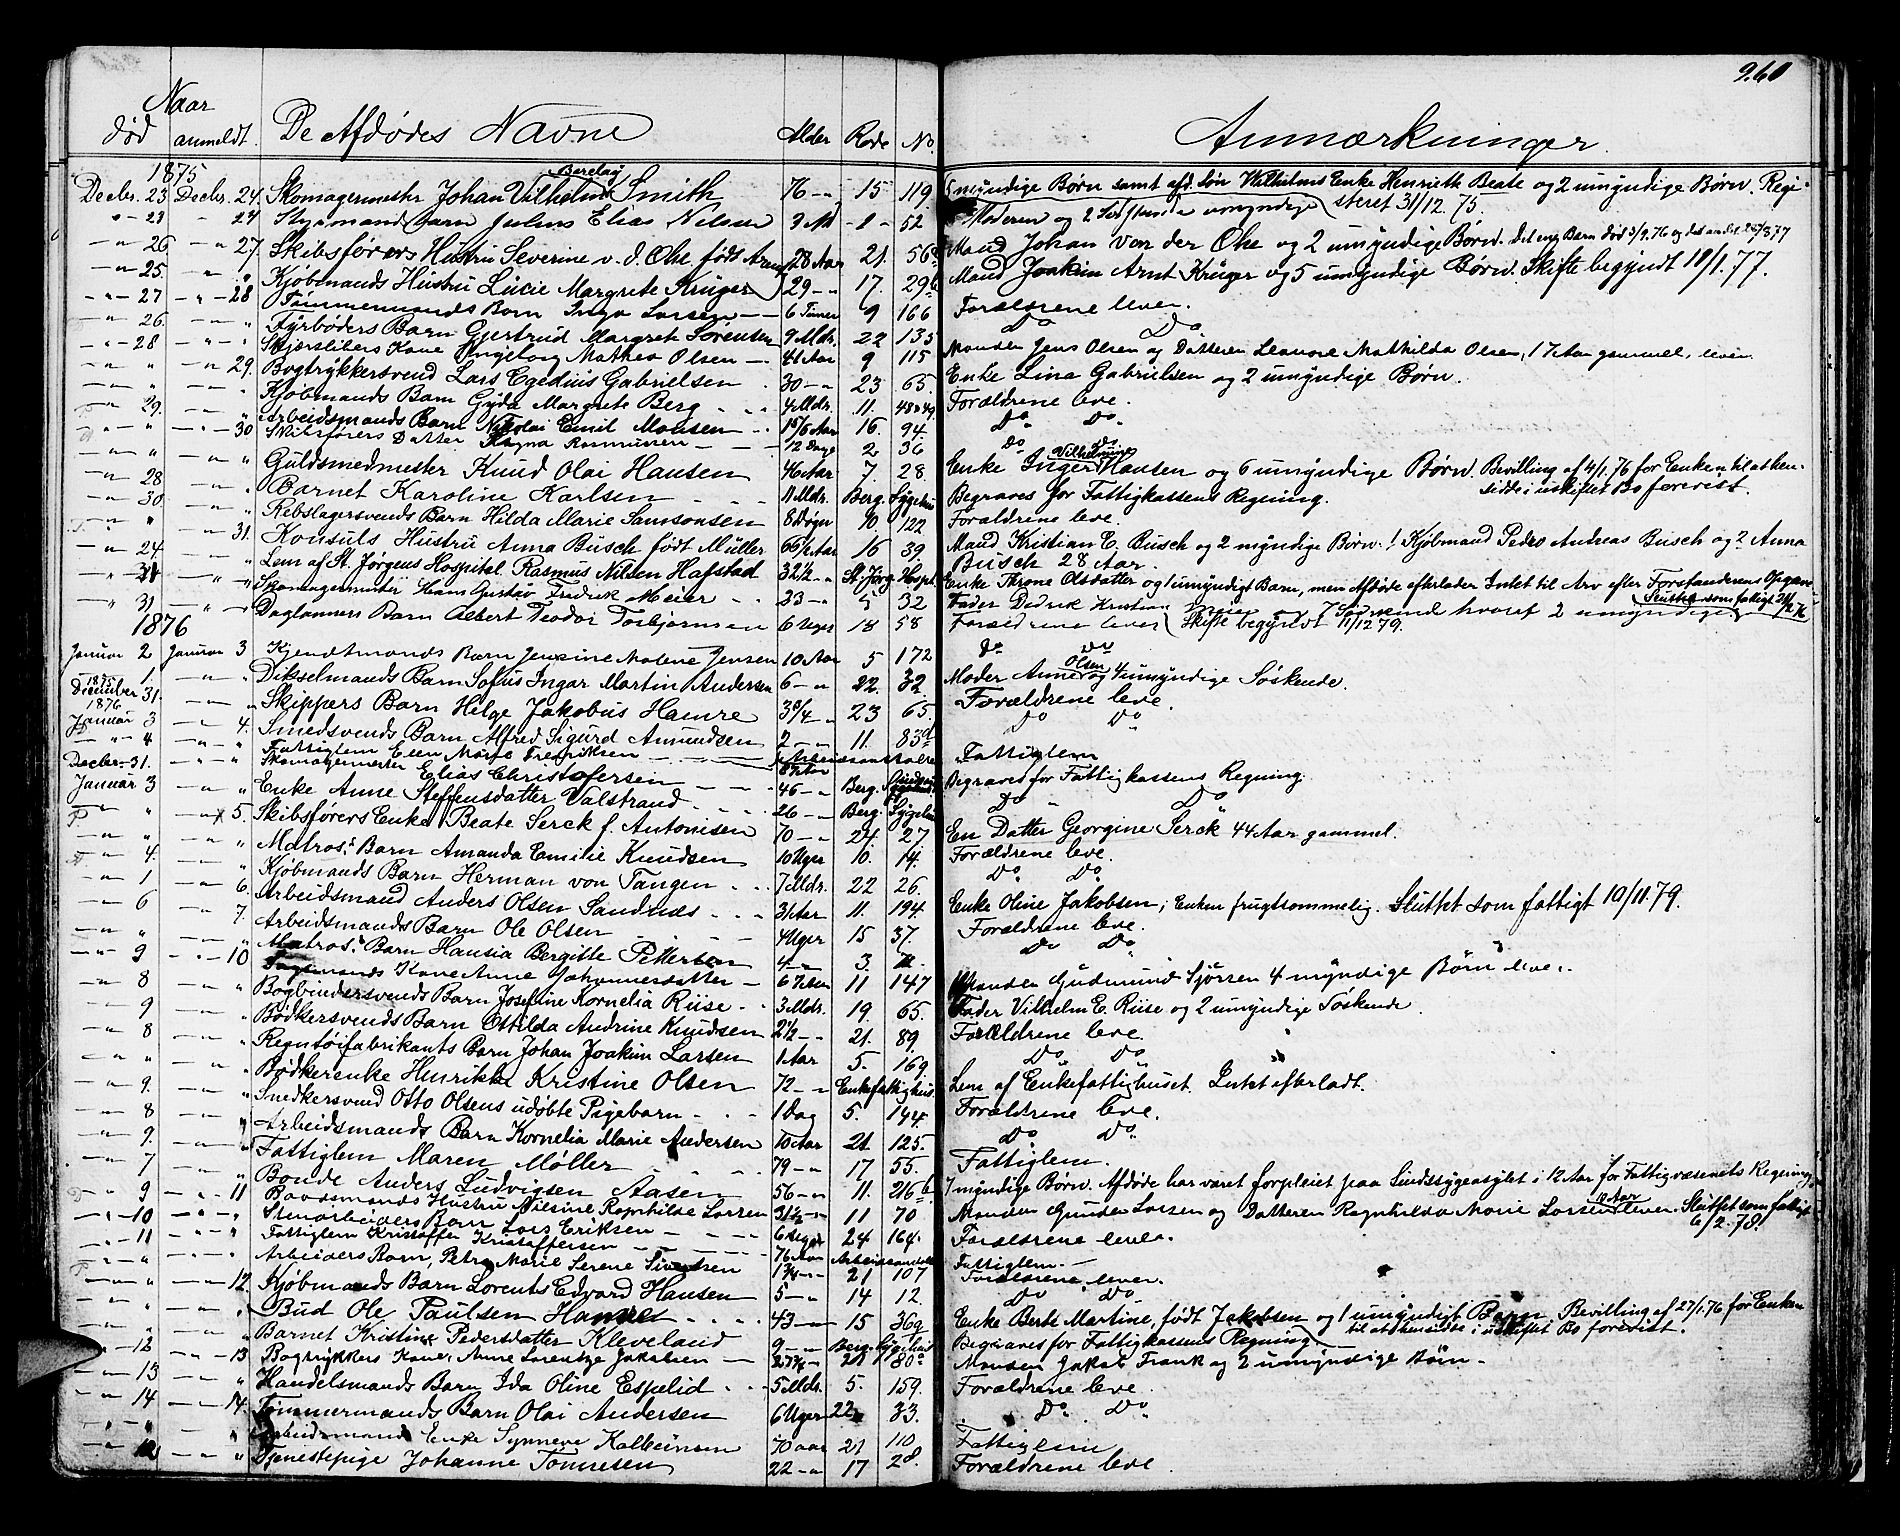 260
Naar
død anmeldt. De Afdødes Navne Alder Rode No. Anmærkninger.
1875
Decbr. 23 Decbr. 24. Skomagermester Johan Vilhelm Smith 76 -"- 15 119 myndige Børn samt afd. Søn Wilhelms Enke Henriette Beate og 2 umyndige Børn. Regi-
-"- 23 " 24 Barn Julius Elias Nilsen 3 M 1 52 Moderen og 2 umyndige steret 31/12 75.
-"- 26 -"- 27. Skibsførers Hustru Severine v. d. Ohe født 28 Aar 21. 56 Mand Johan von der Ohe og 2 umyndige Børn. Det ene Barn død 3/9.76 og det andet
-"- 25. -"- " Kjøbmands Hustru Lucie Margrete Krüger 29 -"- 17. 29 Mand Joakim Arnt Krüger og 5 umyndige Børn. Skifte begyndt 18/1.77.
-"- 27 -"- 28 Tømmermands Barn Larsen 6 Timer 9 166 Forældrene lever.
-"- 26. -"- " Fyrbøders Barn Gjertrud Margrete Sørensen 9 Mdr. 22 135 Do Do
-"- 28 -"- " Kone Ingeborg Mathea Olsen 41 Aar 9 115 Manden Jens Olsen og Datteren Leonore Mathilda Olsen, 17 Aar gammel, lever.
-"- " -"- 29. Bogtrykkersvend Lars Egedius Gabrielsen 30 -"- 23 65. Enke Lina Gabrielsen og 2 umyndige Børn.
-"- " " Kjøbmands Barn Gyda Margrete Berg 4 Mdr. 11. 48 & 49 Forældrene leve.
-"- 29. " Arbeidsmands Barn Nikolai Emil Monsen 1 5/6 Aar 16. 94. Do Do
-"- " -"- 30 Skibsførers Datter Magna Rasmussen 12 Dage 2 36 Do Do
-"- " -"- " Guldsmedmester Knud Olai Hansen 46 Aar 7. 28. Enke Inger Vilhelmine Hansen og 6 umyndige Børn. Bevilling af 4/1.76 for Enken til at hen-
sidde i uskiftet Bo forevist.
-"- 28 -"- " Barnet Karoline Karlsen 11 Mdr. Berg. Sygehus Begraves for Fattigkassens Regning.
-"- 30. -"- " Rebslagersvends Barn Hilda Marie Samsonsen 8 Døgn 10. 122 Forældrene leve.
-"- " -"- 31. Konsuls Hustru Anna Busch født Müller 66 1/2 Aar 16 39. Mand Kristian E. Busch og 2 myndige Børn: 1 Kjøbmand Pedro Andreas Busch og 2 Anna
Busch 28 Aar.
-"- 24. -"- " Lem af St. Jørgens Hospital Rasmus Nilsen Hafstad 32 1/2 -"- St. Jørg. Hospt. Enke Throne Olsdatter og 1 umyndigt Barn, men Afdøde efterlader Intet til Arv efter Forstanderens Opgave
-"- 31 -"- " Skomagermester Hans Gustav Fredrik Meier 23 -"- 5 32 Fader Didrik Kristian Meier og 7 Sødskende hvoraf 2 umyndige Sluttet som fattigt
-"- 31 -"- " Daglønners Barn Albert Teodor Torbjørnsen 6 Uger 18 58 Forældrene lever Skifte begyndt 11/12 79.
1876
Januar 2 Januar 3 Barn Jensine Malene Jensen 10 Aar 5 172 Do Do
-"- 1. -"- " Barn Sofus Ingar Martin Andersen 6 -"- 22. 32. Moder Anne Olsen og 4 umyndige Søskende.
1875
December 31. -"- " Skippers Barn Helge Jakobus Hamre 3 3/4 -"- 23 65. Forældrene leve.
1876
Januar 3 -"- 4. Smedsvends Barn Alfred Sigurd Amundsen 2 -"- 11. 83 Do Do
-"- 4 -"- " Fattiglem Ellen Marie Fredriksen Arbeidsanstalten Fattiglem
Decbr. 31. -"- " Skomagermester Elias Christofersen 46 -"- Berg. Begraves for Fattigkassens Regning.
Januar 3 -"- " Enke Anne Steffensdatter Valstrand 26 -"- Berg. Sygehus Do Do
-"- " -"- 5. Skibsførers Enke Beate Serck f. Antonisen 70 -"- 24. 27. En Datter Georgine Serck 44 Aar gammel.
-"- " " Matros' Barn Amanda Emilie Knudsen 10 Uger 10. 14. Forældrene leve.
-"- 4. " Kjøbmands Barn Herman von Tangen 7 Mdr. 22 26. Do Do
-"- 1 -"- 6. Arbeidsmand Anders Olsen Sandnæs 31 Aar 11. 194 Enke Oline Jakobsen; Enken frugtsommelig. Sluttet som fattigt 10/11.79.
-"- 6 -"- 7. Arbeidsmands Barn Ole Olsen 4 Uger 15 37. Forældrene leve.
-"- " -"- " Matros' Barn Hansia Bergitte Pettersen 4 -"- 3. Do Do
-"- 9 -"- 10 Kone Anne Johannesdatter 67 Aar 11 147 Manden Gudmund Sjørsen 4 myndige Børn lever.
-"- 8 " Bogbindersvends Barn Josefine Kornelia Riise 3 Mdr. 19. 65. Fader Vilhelm E. Riise og 2 umyndige Søskende.
-"- 9 " Bødkersvends Barn Ottilda Andrine Knudsen 2 1/2 -"- 21. 89. Forældrene leve.
-"- 8 " Regntøifabrikants Barn Johan Joakim Larsen 1 Aar 5. 169. Do Do
-"- " " Bødkerenke Henrikke Kristine Olsen 72 -"- Enkefattighus. Lem af Enkefattighuset. Intet efterladt.
-"- 9. " Snedkersvend Otto Olsens udøbte Pigebarn 1 Dag 5. 144. Forældrene leve.
-"- 8 " Arbeidsmands Barn Kornelia Marie Andersen 10 Aar 21. 125. Do Do
-"- 9. " Fattiglem Maren Møller 79 -"- 17 55. Fattiglem.
-"- 7 " Bonde Anders Ludvigsen Aasen 56 -"- 11. 216 b 7 myndige Børn. Afdøde har været forpleiet paa Sindssygeasylet i 12 Aar for Fattigvæsenets Regning.
-"- 9 -"- 11 Baadsmands Hustru Nilsine Ragnhilde Larsen 31 1/2 -"- 11 70 Manden Gunder Larsen og Datteren Ragnhilda Marie Larsen 10 Aar lever. Sluttet som fattigt
6/2.78.
-"- 10 -"- " Stenarbeiders Barn Lars Eriksen 6 Uger 24 164. Forældrene lever.
-"- 11 -"- " Fattiglem Kristoffer Kristoffersen 76 Aar Arbeidsanstalten Fattiglem.
-"- " -"- " Arbeiders Barn, Petra Marie Serene Sivertsen 1 3/4 -"- 21 107 Forældrene lever.
-"- " -"- 12. Kjøbmands Barn Lorents Edvard Hansen 5 -"- 14 12. Do Do
-"- " -"- " Bud Ole Paulsen Hamre 43 -"- 15 36 Enke Berte Martine, født Jakobsen og 1 umyndigt Barn. Bevilling af 27/1.76 for Enken
til at hensidde i uskiftet Bo forevist.
-"- " " Barnet Kristine Pedersdatter Kleveland 9 -"- Berg. Sygehus Begraves for Fattigkassens Regning
-"- 12 -"- 13 Bogtrykkers Kone Anne Lorentze Jakobsen 27 3/4 -"- 21 80 Manden Jakob Frank og 2 umyndige Børn.
-"- 13 -"- " Handelsmands Barn Ida Oline Espelid 5 Mdr. 5. 159. Forældrene leve.
-"- 14 -"- 14. Tømmermands Barn Olai Andersen 6 Uger 22 33. Do Do
-"- " -"- " Arbeidsmands Enke Synneve 70 aar 21 110 Fattiglem
-"- 12 -"- " Tjenestepige Johanne Tomresen 22 -"- 17 28. Forældrene leve.